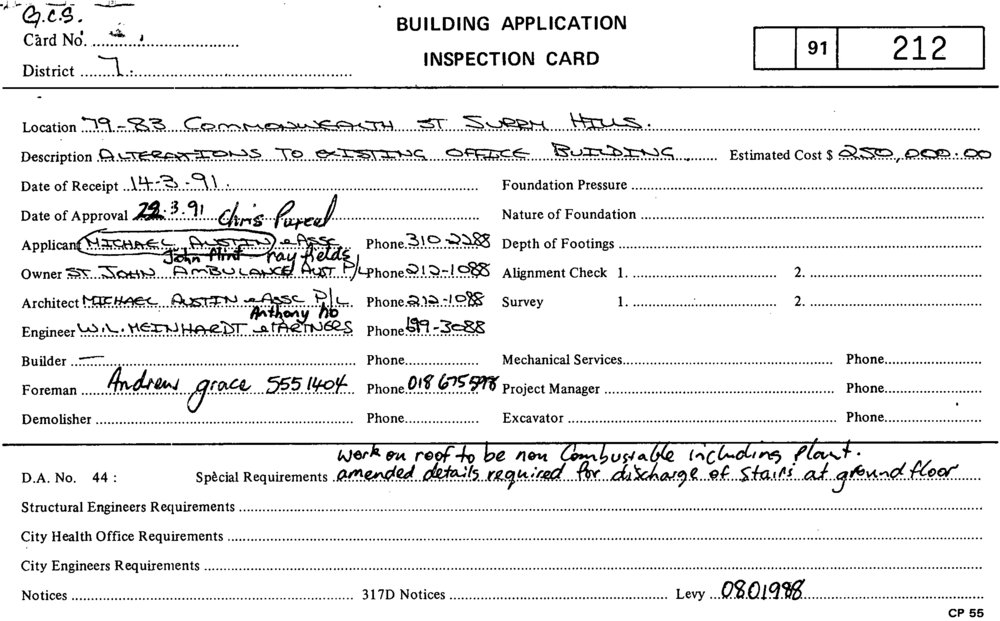 G.C.S.
BUILDING APPLICATION
Card No.
INSPECTION CARD
91 212
District 7
Location 79-83 COMMONWEALTH ST SURRY HILLS.
Description ALTERATIONS TO EXISTING OFFICE BUILDING Estimated Cost $ 250,000.00
Date of Receipt 14-3-91. Foundation Pressure
Date of Approval 22.3.91 Chris Purcel Nature of Foundation
Applicant MICHAEL AUSTIN & ASSC. Phone 310-2288 Depth of Footings
John Flint ray fields
Owner ST. JOHN AMBULANCE AUST P/L Phone 212-1088 Alignment Check 1. 2.
Architect MICHAEL AUSTIN & ASSC P/L Phone 212-1088 Survey 1. 2.
Anthony Ho
Engineer W.L. MEINHARDT & PARTNERS Phone 699-3088
Builder — Phone Mechanical Services Phone
Foreman Andrew grace 555 1404 Phone 018 675 Project Manager Phone
Demolisher Phone Excavator Phone
work on roof to be non Combustable including Plant.
D.A. No. 44 : Special Requirements amended details required for discharge of stairs at ground floor
Structural Engineers Requirements
City Health Office Requirements
City Engineers Requirements
Notices 317D Notices Levy 0801988
CP 55